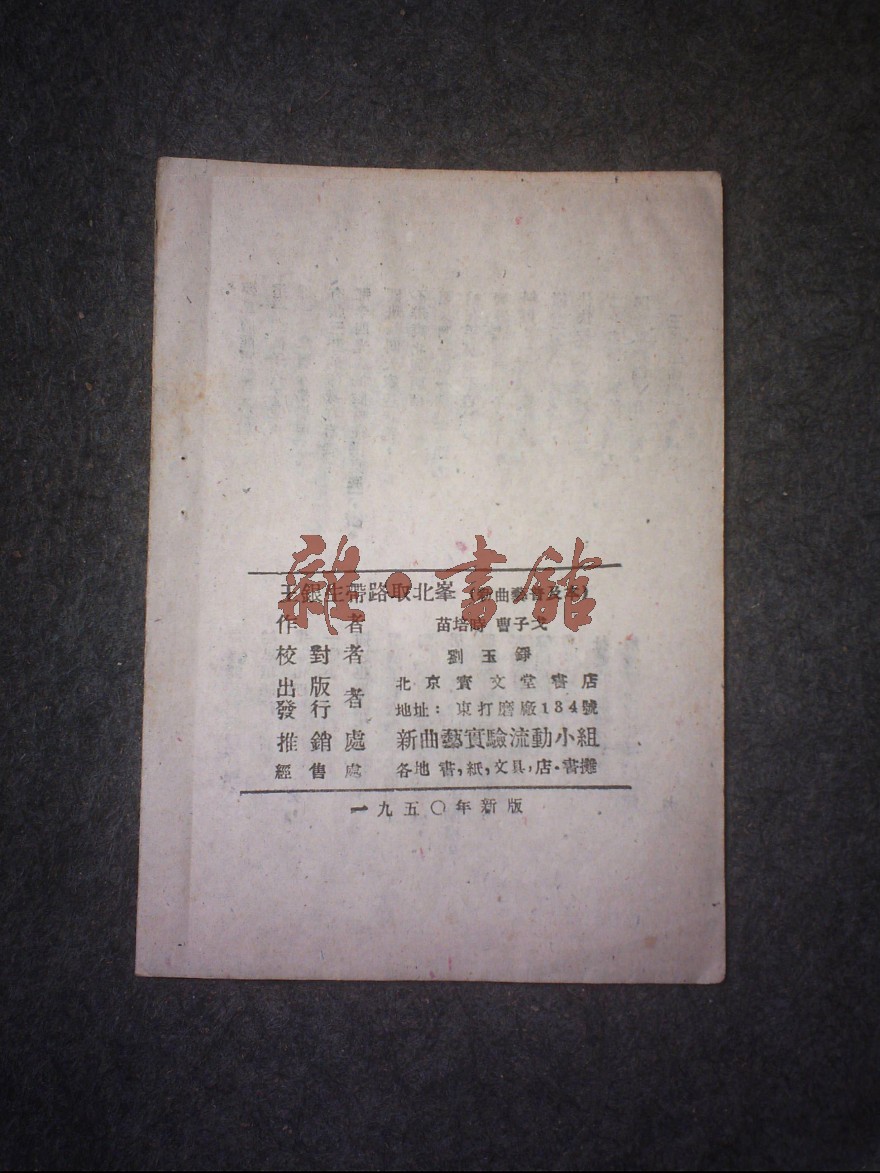 雜·書館
王銀生帶路取北峯(戲曲藝普及本)
作者 苗培時 曹子戈
校對者 劉玉錚
出版
發行者 北京寶文堂書店
地址:東打磨廠134號
推銷處 新曲藝實驗流動小組
經售處 各地書,紙,文具,店·書攤
一九五〇年新版